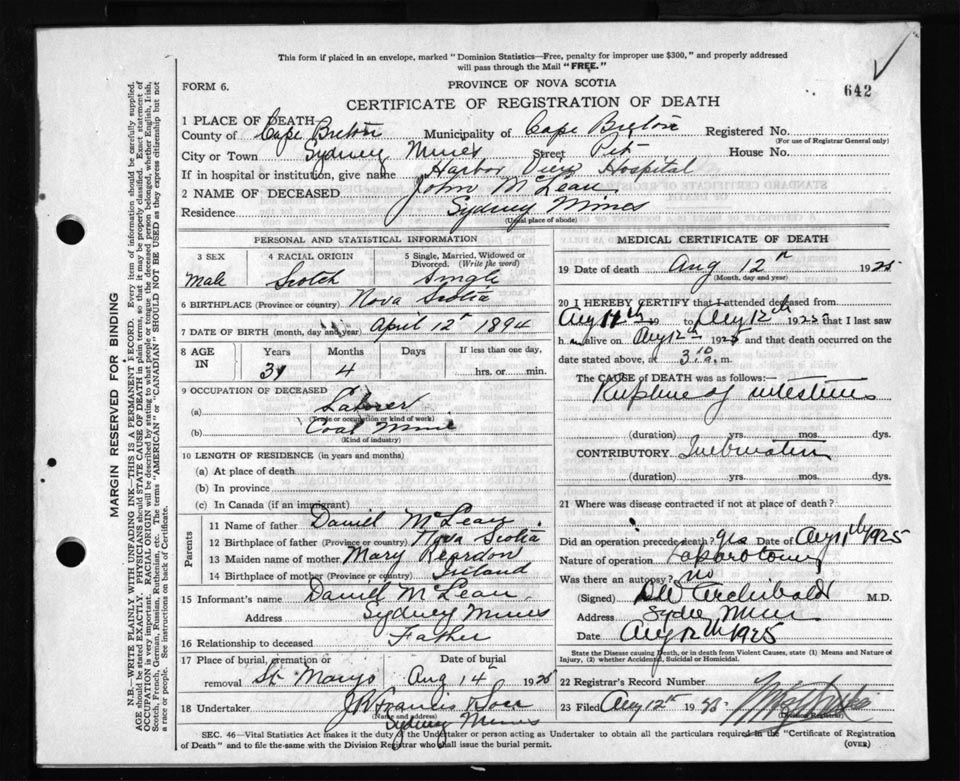 This form if placed in an envelope, marked "Dominion Statistics—Free, penalty for improper use $300," and properly addressed
will pass through the Mail "FREE."
642
FORM 6.
PROVINCE OF NOVA SCOTIA
CERTIFICATE OF REGISTRATION OF DEATH
1 PLACE OF DEATH—
County of Cape Breton Municipality of Cape Breton Registered No.
(For use of Registrar General only)
City or Town Sydney Mines Street Pitt House No.
If in hospital or institution, give name Harbor View Hospital
2 NAME OF DECEASED John McLean
Residence Sydney Mines
(Usual place of abode)
PERSONAL AND STATISTICAL INFORMATION
3 SEX
Male
4 RACIAL ORIGIN
Scotch
5 Single, Married, Widowed or
Divorced. (Write the word)
Single
6 BIRTHPLACE (Province or country) Nova Scotia
7 DATE OF BIRTH (month, day and year) April 12th 1894
8 AGE IN
Years Months Days If less than one day,
31 4 hrs. or min.
9 OCCUPATION OF DECEASED
(a) Laborer
(Trade or occupation or kind of work)
(b) Coal Mine
(Kind of industry)
10 LENGTH OF RESIDENCE (in years and months)
(a) At place of death
(b) In province
(c) In Canada (if an immigrant)
Parents
11 Name of father Daniel McLean
12 Birthplace of father (Province or country) Nova Scotia
13 Maiden name of mother Mary Reardon
14 Birthplace of mother (Province or country) Ireland
15 Informant's name Daniel McLean
Address Sydney Mines
16 Relationship to deceased Father
17 Place of burial, cremation or
removal St Marys
Date of burial
Aug 14th 1925
18 Undertaker J R Francis Son
(Name and address)
Sydney Mines
MEDICAL CERTIFICATE OF DEATH
19 Date of death Aug 12th 1925
(Month, day and year)
20 I HEREBY CERTIFY that I attended deceased from
Aug 11th 19 to Aug 12th 1925 that I last saw
h m alive on Aug 12th 1925 and that death occurred on the
date stated above, at 3.10 a. m.
The CAUSE of DEATH was as follows:
Rupture of intestines
(duration) yrs. mos. dys.
CONTRIBUTORY
(duration) yrs. mos. dys.
21 Where was disease contracted if not at place of death?
Did an operation precede death? yes Date of Aug 11th 1925
Nature of operation Laparotomy
Was there an autopsy? no
(Signed) Archibald M.D.
Address Sydney Mines
Date Aug 12th 1925
State the Disease causing Death, or in death from Violent Causes, state (1) Means and Nature of
Injury, (2) whether Accidental, Suicidal or Homicidal.
22 Registrar's Record Number
23 Filed Aug 12th 1925
(Division Registrar)
SEC. 46—Vital Statistics Act makes it the duty of the Undertaker or person acting as Undertaker to obtain all the particulars required in the "Certificate of Registration
of Death" and to file the same with the Division Registrar who shall issue the burial permit. (OVER)
MARGIN RESERVED FOR BINDING
N.B.—WRITE PLAINLY WITH UNFADING INK—THIS IS A PERMANENT RECORD. Every item of information should be carefully supplied.
AGE should be stated EXACTLY. PHYSICIANS should STATE CAUSE OF DEATH in plain terms, so that it may be properly classified. Exact statement of
OCCUPATION is very important. RACIAL ORIGIN will be described by stating to what people or tongue the deceased person belonged, whether English, Irish,
Scotch, French, German, Russian, Ruthenian, etc. The terms "AMERICAN" or "CANADIAN" SHOULD NOT BE USED as they express citizenship but not
a race or people. See instructions on back of Certificate.